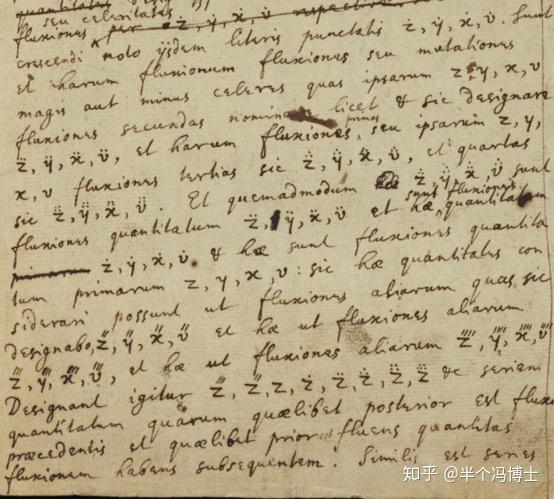 seu celeritates
fluxiones per ż, ẏ, ẋ, v̇ respective
crescendi noto ijsdem literis punctatis ż, ẏ, ẋ, v̇. Sunt
et harum fluxionum fluxiones seu mutationes
magis aut minus celeres quas ipsarum z, y, x, v
fluxiones secundas nominare licet & sic designare
z̈, ÿ, ẍ, v̈, et harum fluxiones primas seu ipsarum z, y,
x, v fluxiones tertias sic z⃛, y⃛, x⃛, v⃛, et quartas
sic z⃜, y⃜, x⃜, v⃜ Et quemadmodum z⃛, y⃛, x⃛, v⃛ sunt
fluxiones quantitatum z̈, ÿ, ẍ, v̈ et hæ sunt fluxiones quantitatum
primarum ż, ẏ, ẋ, v̇ & hæ sunt fluxiones quantita
tum primarum z, y, x, v: sic hæ quantitates con
siderari possunt ut fluxiones aliarum quas sic
designabo, z̍, y̍, x̍, v̍ et hæ ut fluxiones aliarum
z̎, y̎, x̎, v̎, et hæ ut fluxiones aliarum z''', y''', x''', v'''
Designant igitur z̎, z̍, z, ż, z̈, z⃛, z⃜ &c seriem
quantitatum quarum quælibet posterior est fluxio
præcedentis et quælibet prior fluens quantitas
fluxionem habens subsequentem. Similis est series
知乎 @半个冯博士